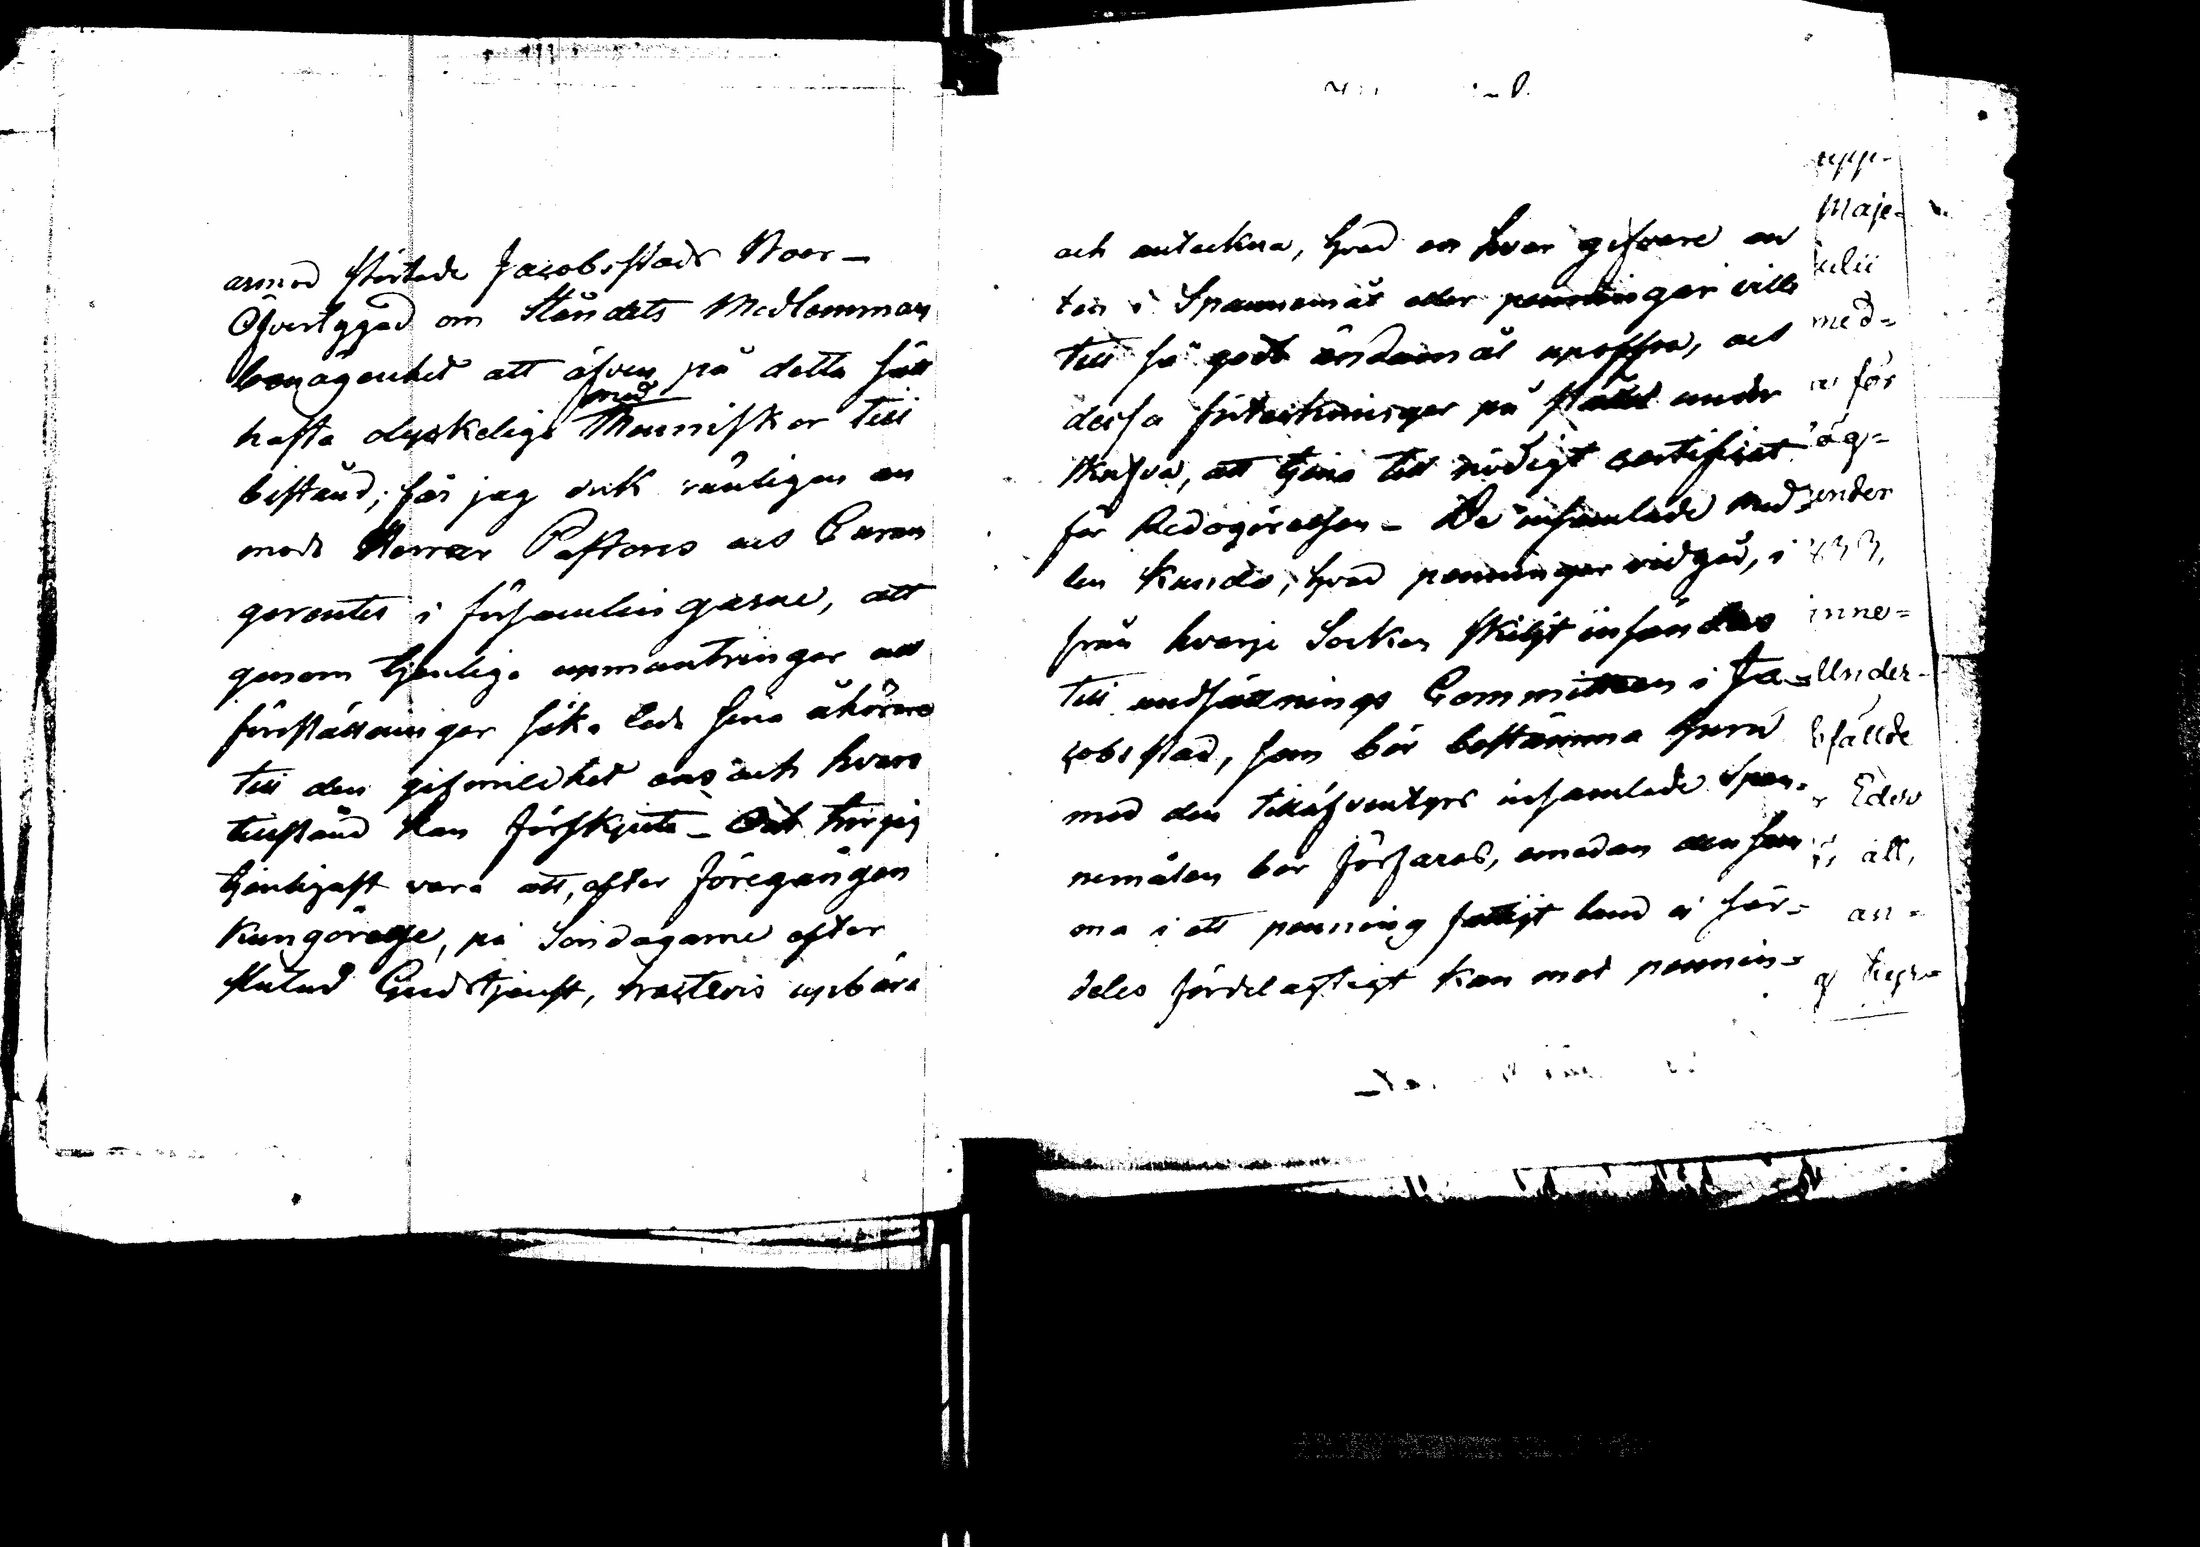 armod störtade Jacobsstads Boer_
Öfvertygad om Ståndets Medlemmars
benägenhet att äfven på detta sätt
hasta olyckeliga med Menniskor till
bistånd; får jag ock vänligen an
moda Herrar Pastores och Curam
gerentes i församlingarne, att
genom tjenliga upmuntringar och
föreställningar söka leda sina åhörare
till den gifmildhet ens och hvars
tillstånd kan förskjuta_ Det torde
tjenligast vara att, efter föregången
Kungörelse, på Söndagarne efter
slutad Gudstjenst, upbära
och anteckna, hvad en hvar gifvare an
ten i Spannemål eller penningar vill
till så godt ändamål upoffra, och
dessa förteckningar på stället under
skrifva, att tjena till nödigt certificat
för Redogörelsen_ De insamlade med=
len kunde, hvad penningar vidgåd, i
från hvarje Socken skiljt insändas
till undsättnings Committeen i Ja=
cobsstad, som bör bestämma huru
med den tilläfventyrs insamlade Span=
nemålen bör förfaras, emedan den sam
ma i ett penning fattigt land ej sär=
deles fördelagtigt kan mot pennin=
upp-
Maje=
Julii
med=
för
äg=
ender
inne=
Under-
fällde
Eder
all,
an=